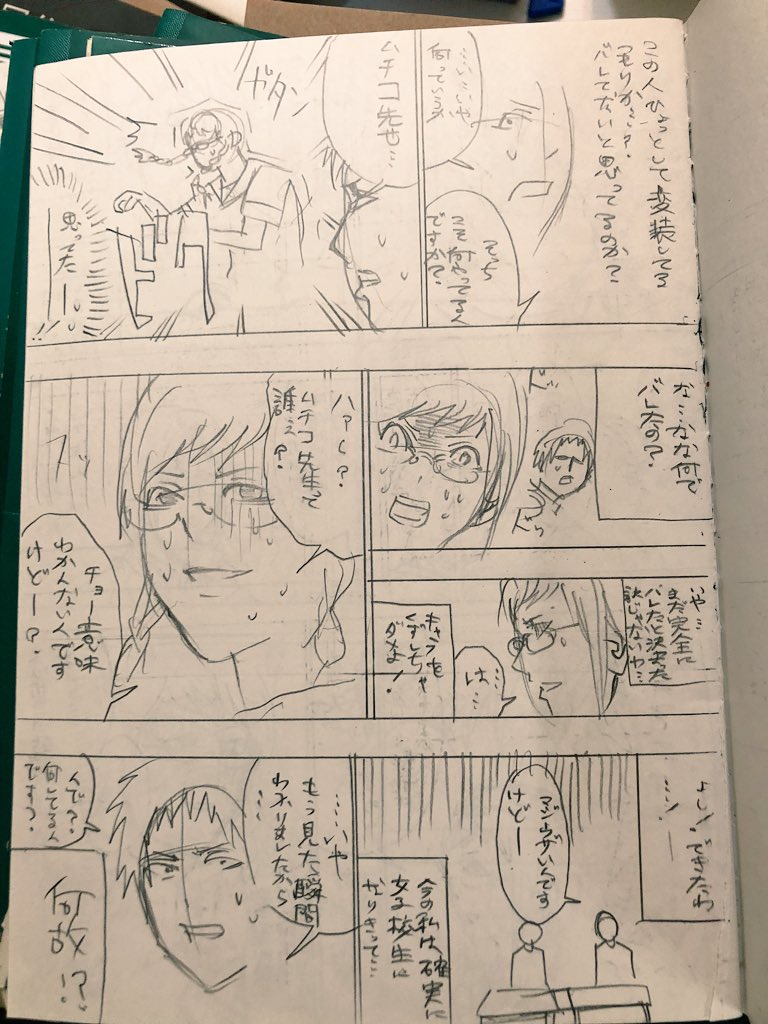 この人ひょっとして変装してる
つもりか…？
バレてないと思ってるのか？
そっち
こそ何やってる人
ですか？
……いいや
何っていうか
ムチコ先生…
ガタン
思ってたー！！
な…なな何で
バレたの？
ドッ
ドッ
いや…
まだ完全に
バレたと決まった
訳じゃないわ…
は…
キャラを
くずしちゃ
ダメ！
ハァ〜？
ムチコ先生って
誰ぇ
？
スッ
チョー意味
わかんない人です
けどー？
よしッ！できたわ
ミッ
マジウザいんです
けどー
今の私は確実に
女子校生に
なりきって…
……いや
もう見た瞬間
わかりましたから
…
んで？
何してる人
ですっ？
何故!?